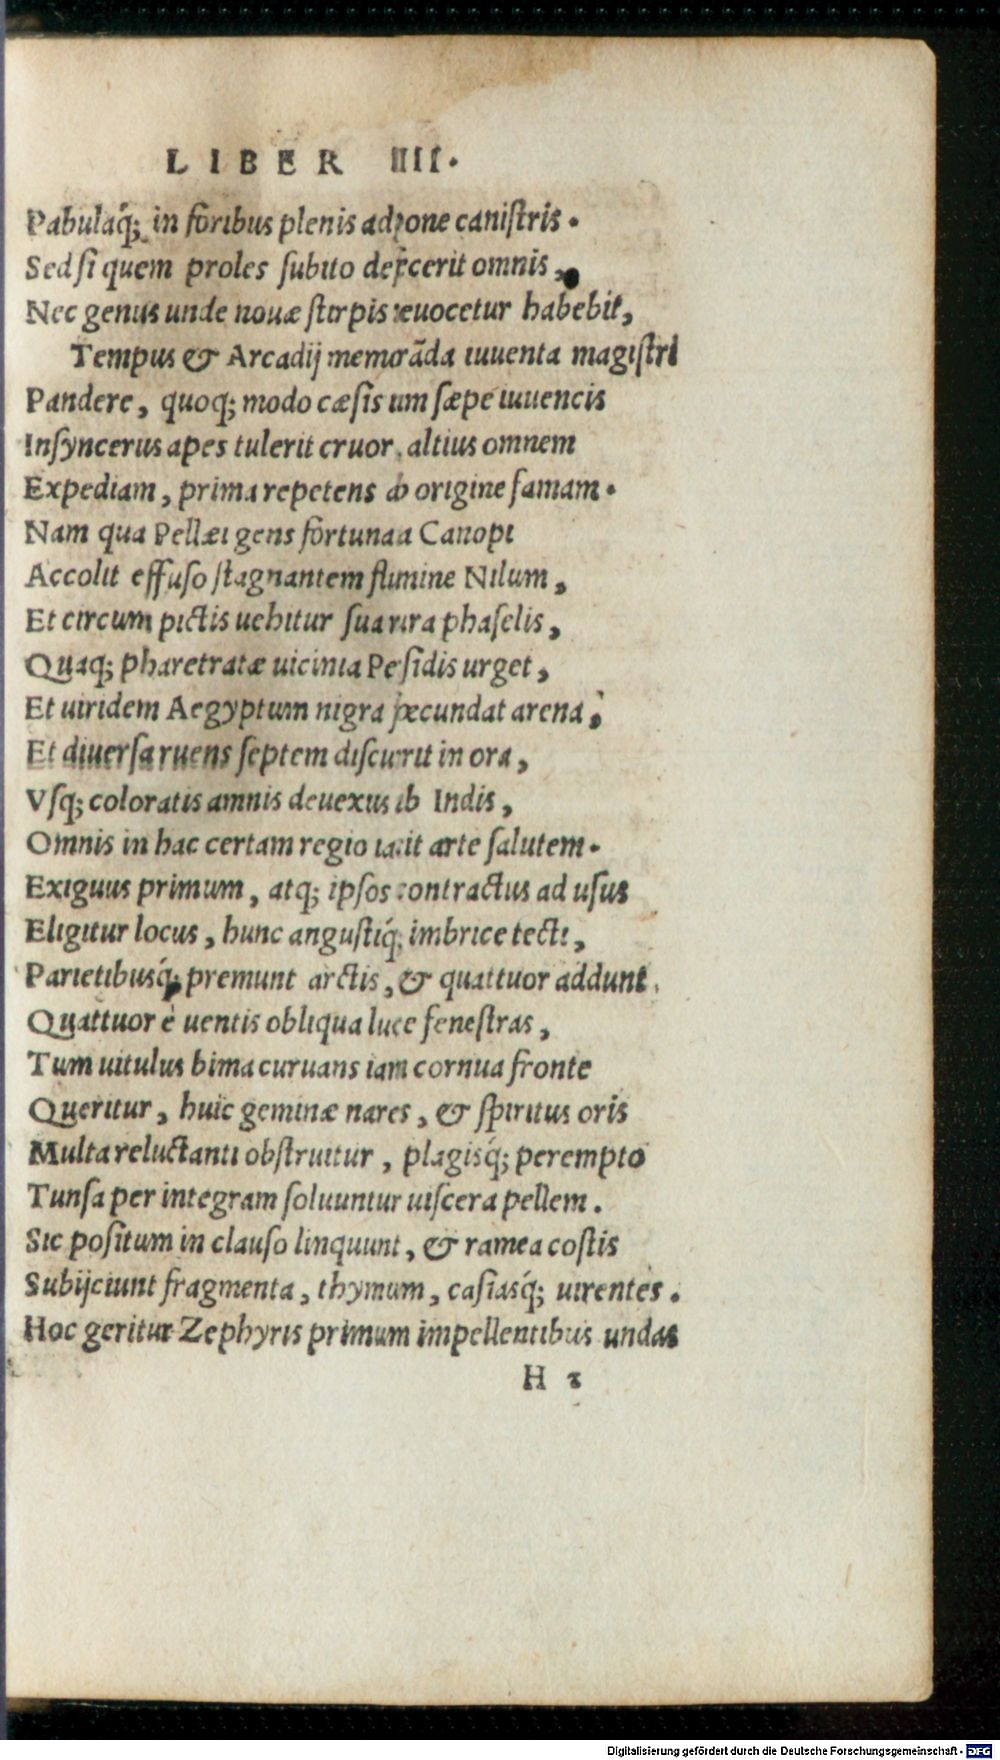 LIBER IIII.
Pabulaq́; in foribus plenis adpone caniſtris.
Sed ſi quem proles ſubito defecerit omnis,
Nec genus unde nouæ ſtirpis reuocetur habebit,
Tempus & Arcadij memorãda iuuenta magiſtri
Pandere, quoq; modo cæſis um ſæpe iuuencis
Inſyncerus apes tulerit cruor. altius omnem
Expediam, prima repetens ab origine famam.
Nam qua Pellæi gens fortunata Canopi
Accolit effuſo ſtagnantem flumine Nilum,
Et circum pictis uehitur ſua rura phaſelis,
Quaq; pharetratæ uicinia Perſidis urget,
Et uiridem Aegyptum nigra fœcundat arena,
Et diuerſa ruens ſeptem diſcurrit in ora,
Vſq; coloratis amnis deuexus ab Indis,
Omnis in hac certam regio iacit arte ſalutem.
Exiguus primum, atq; ipſos contractus ad uſus
Eligitur locus, hunc anguſtiq́; imbrice tecti,
Parietibusq́; premunt arctis, & quattuor addunt,
Quattuor è uentis obliqua luce feneſtras,
Tum uitulus bima curuans iam cornua fronte
Queritur, huic geminæ nares, & ſpiritus oris
Multa reluctanti obſtruitur, plagisq́; perempto
Tunſa per integram ſoluuntur uiſcera pellem.
Sic poſitum in clauſo linquunt, & ramea coſtis
Subijciunt fragmenta, thymum, caſiasq́; uirentes.
Hoc geritur Zephyris primum impellentibus undas
H 2
Digitalisierung gefördert durch die Deutsche Forschungsgemeinschaft - DFG